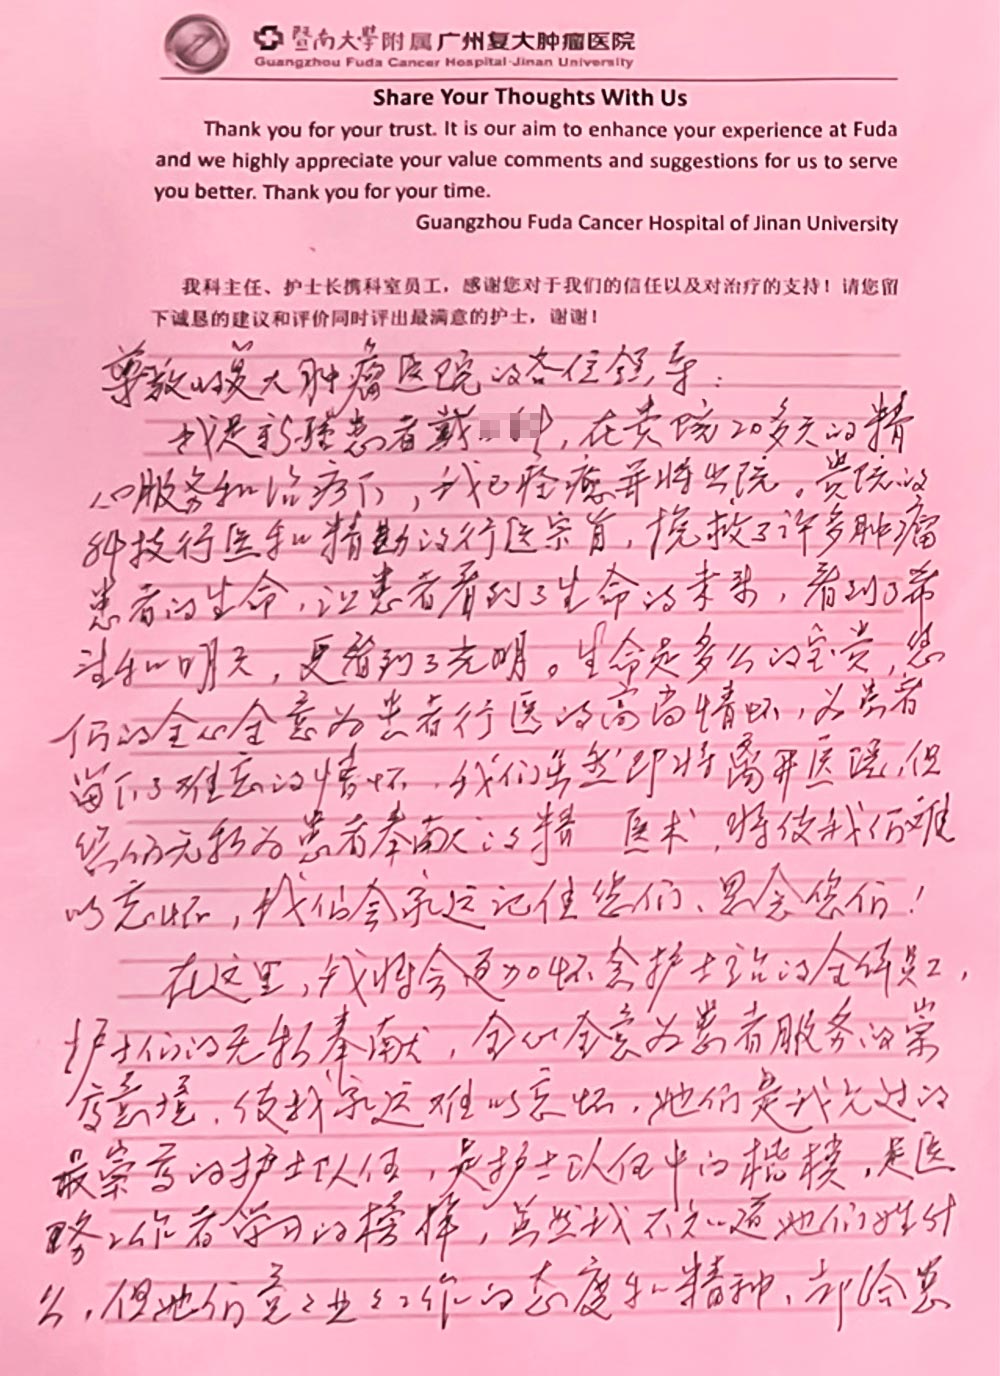 暨南大學附属广州复大肿瘤医院
Guangzhou Fuda Cancer Hospital·Jinan University
Share Your Thoughts With Us
Thank you for your trust. It is our aim to enhance your experience at Fuda
and we highly appreciate your value comments and suggestions for us to serve
you better. Thank you for your time.
Guangzhou Fuda Cancer Hospital of Jinan University
我科主任、护士长携科室员工，感谢您对于我们的信任以及对治疗的支持！请您留
下诚恳的建议和评价同时评出最满意的护士，谢谢！
尊敬的复大肿瘤医院的各位领导：
我是新疆患者戴，在贵院20多天的精
心服务和治疗下，我已痊癒并将出院。贵院的
科技行医和精勤的行医宗旨，挽救了许多肿瘤
患者的生命，让患者看到了生命的未来，看到了希
望和明天，更看到了光明。生命是多么的宝贵，您
们的全心全意为患者行医的高尚情怀，为患者
留下了难忘的情怀，我们虽然即将离开医院，但
您们无私为患者奉献的精 医术，将使我们难
以忘怀，我们会永远记住您们、思念您们！
在这里，我将会更加怀念护士站的全体员工，
护士们的无私奉献，全心全意为患者服务的崇
高意境，使我永远难以忘怀，她们是我见过的
最崇高的护士队伍，是护士队伍中的楷模，是医
务工作者学习的榜样，虽然我不知道她们姓什
么，但她们兢兢业业工作的态度和精神，却给患